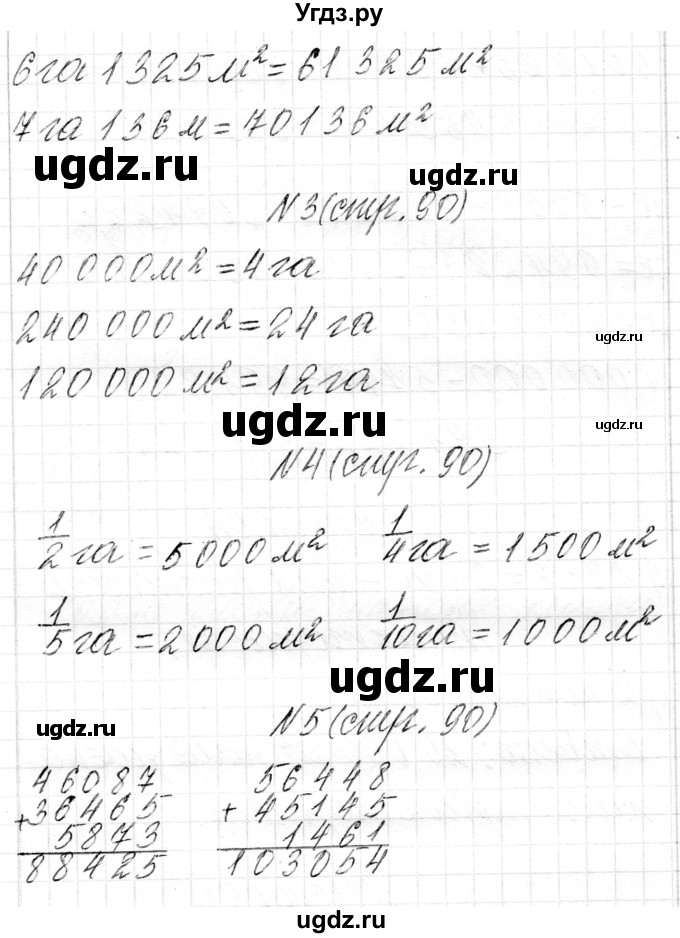 Угдз.ру
6 га 1325 м² = 61 325 м²
7 га 136 м = 70136 м²
ugdz.ru ugdz.ru
N3 (стр. 90)
40 000 м² = 4 га
240 000 м² = 24 га
ugdz.ru
120 000 м² = 12 га
ugdz.ru ugdz.ru
N4 (стр. 90)
1/2 га = 5000 м² 1/4 га = 1500 м²
1/5 га = 2000 м² 1/10 га = 1000 м²
ugdz.ru
ugdz.ru N5 (стр. 90) ugdz.ru
46087 56448
+36465 + 45145
5873 1461
88425 103054
ugdz.ru